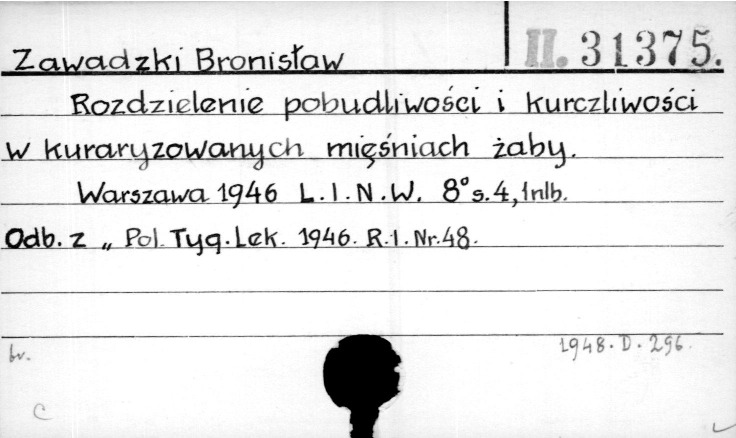 Zawadzki Bronisław
II. 31375.
Rozdzielenie pobudliwości i kurczliwości
w kuraryzowanych mięśniach żaby.
Warszawa 1946 L.I.N.W. 8° s. 4, 1 nlb.
Odb. z „ Pol. Tyg. Lek. 1946. R. I. Nr. 48.
br.
1948. D. 296.
C